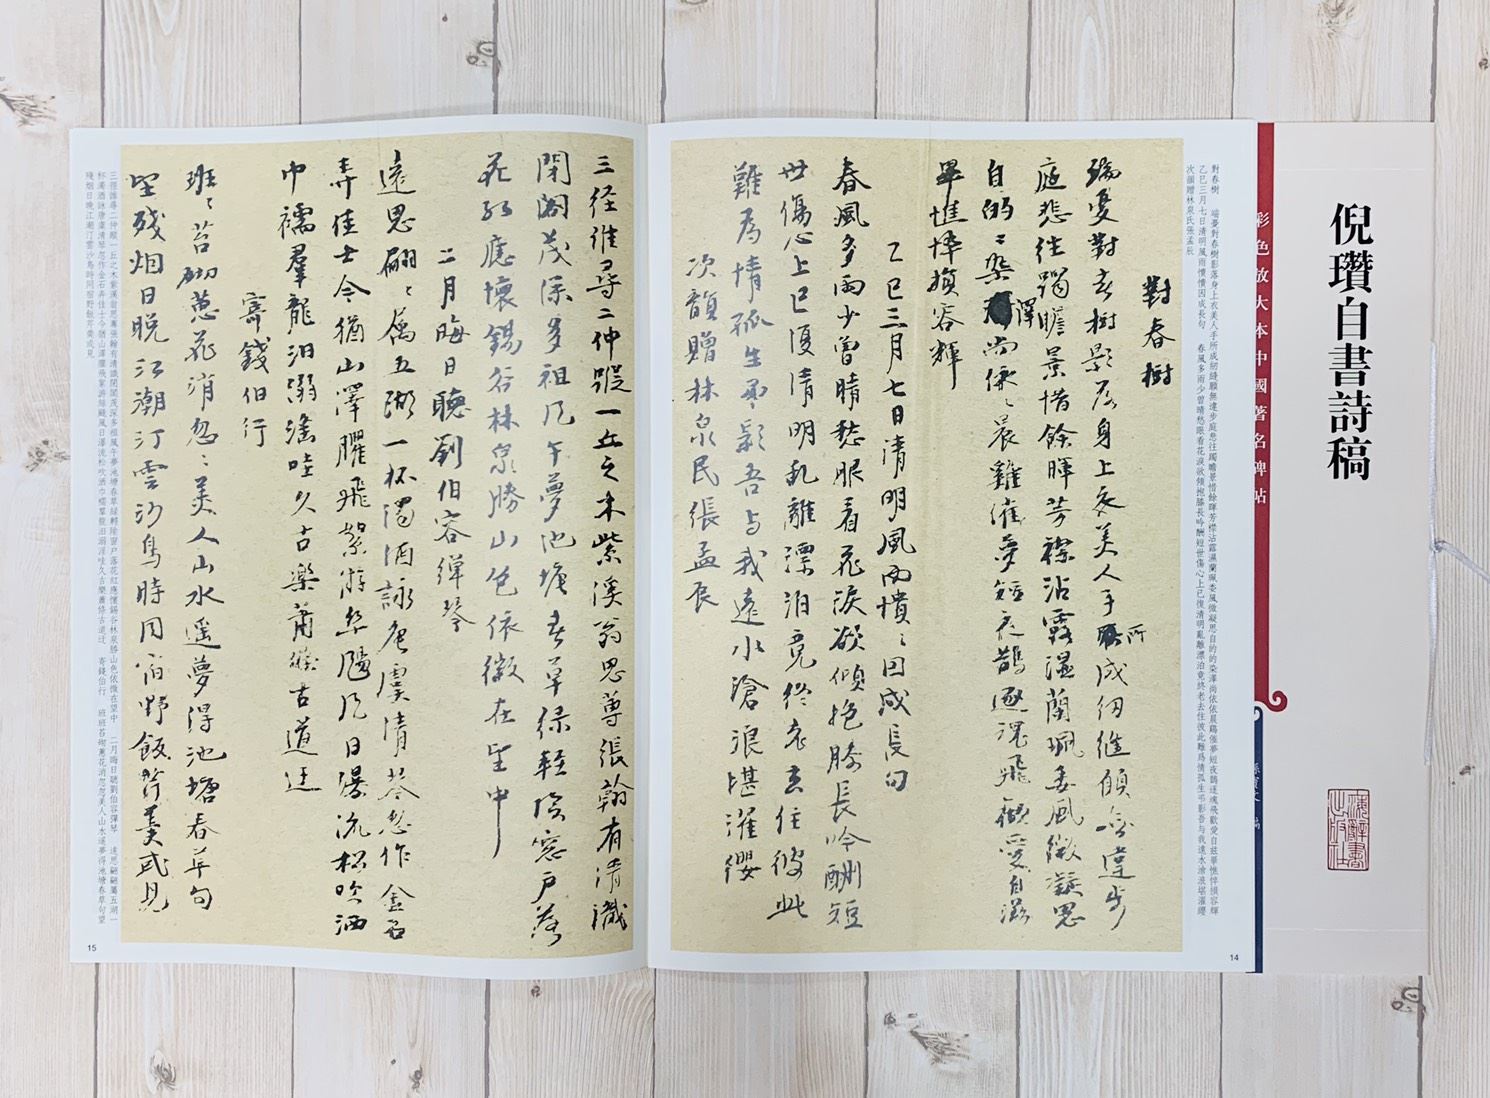 倪瓚自書詩稿
彩色放大本中國著名碑帖
對春樹
瑞夢對春樹影落身上衣美人手所成紉縫願無違步
庭悲往躅瞻景惜餘暉芳襟沾露濕蘭珮委風微凝思
自的的染澤尚依依晨雞催夢短夜鵲逐魂飛歡愛自茲
畢憔悴損容輝
乙巳三月七日清明風雨憒憒因成長句
春風多雨少曾晴愁眼看花淚欲傾抱膝長吟酬短
世傷心上巳復清明亂離漂泊竟終老去住彼此
難為情孤生吊影吾与我遠水滄浪堪濯纓
次韻贈林泉民張孟辰
14
三径誰尋二仲蹤一丘之木紫溪翁思蓴張翰有清識
閉閣茂深多祖風午夢池塘春草綠輕陰窗戶落
花紅應懷錫谷林泉勝山色依微在望中
二月晦日聽劉伯容彈琴
遠思翩翩屬五湖一杯濁酒詠唐虞清琴忽作金石
弄佳士今猶山澤臞飛絮游絲颺風日瀑流松吹洒
巾襦羣龍汩溺淫哇久古樂蕭條古道迂
寄錢伯行
班班苔砌蔥花消忽忽美人山水遥夢得池塘春草句
望殘烟日晚江潮汀雲沙鳥時同宿野飯芹羹或見
15